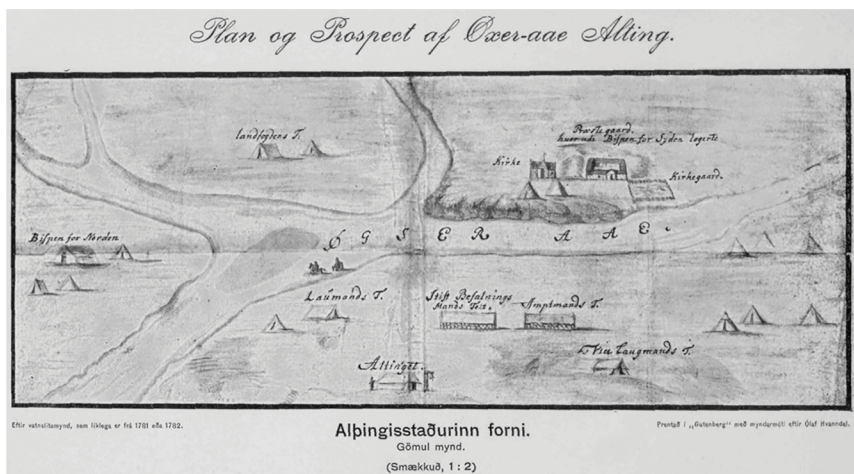 Plan og Prospect af Öxer-aae Alting.
landfogdens T.
Præstegaard.
hvor udi Bispen for Syden logerte
Kirke
Kirkegaard.
Bispen for Norden
ØGSER AAE.
Laumands T.
Stift Befalnings
Mands Telt.
Amptmands T.
Vice Laugmands T.
Altinget.
Eftir vatnslitamynd, sem líklega er frá 1781 eða 1782.
Alþingisstaðurinn forni.
Prentað í „Gutenberg" með myndamóti eftir Ólaf Hvanndal.
Gömul mynd.
(Smækkuð, 1 : 2)